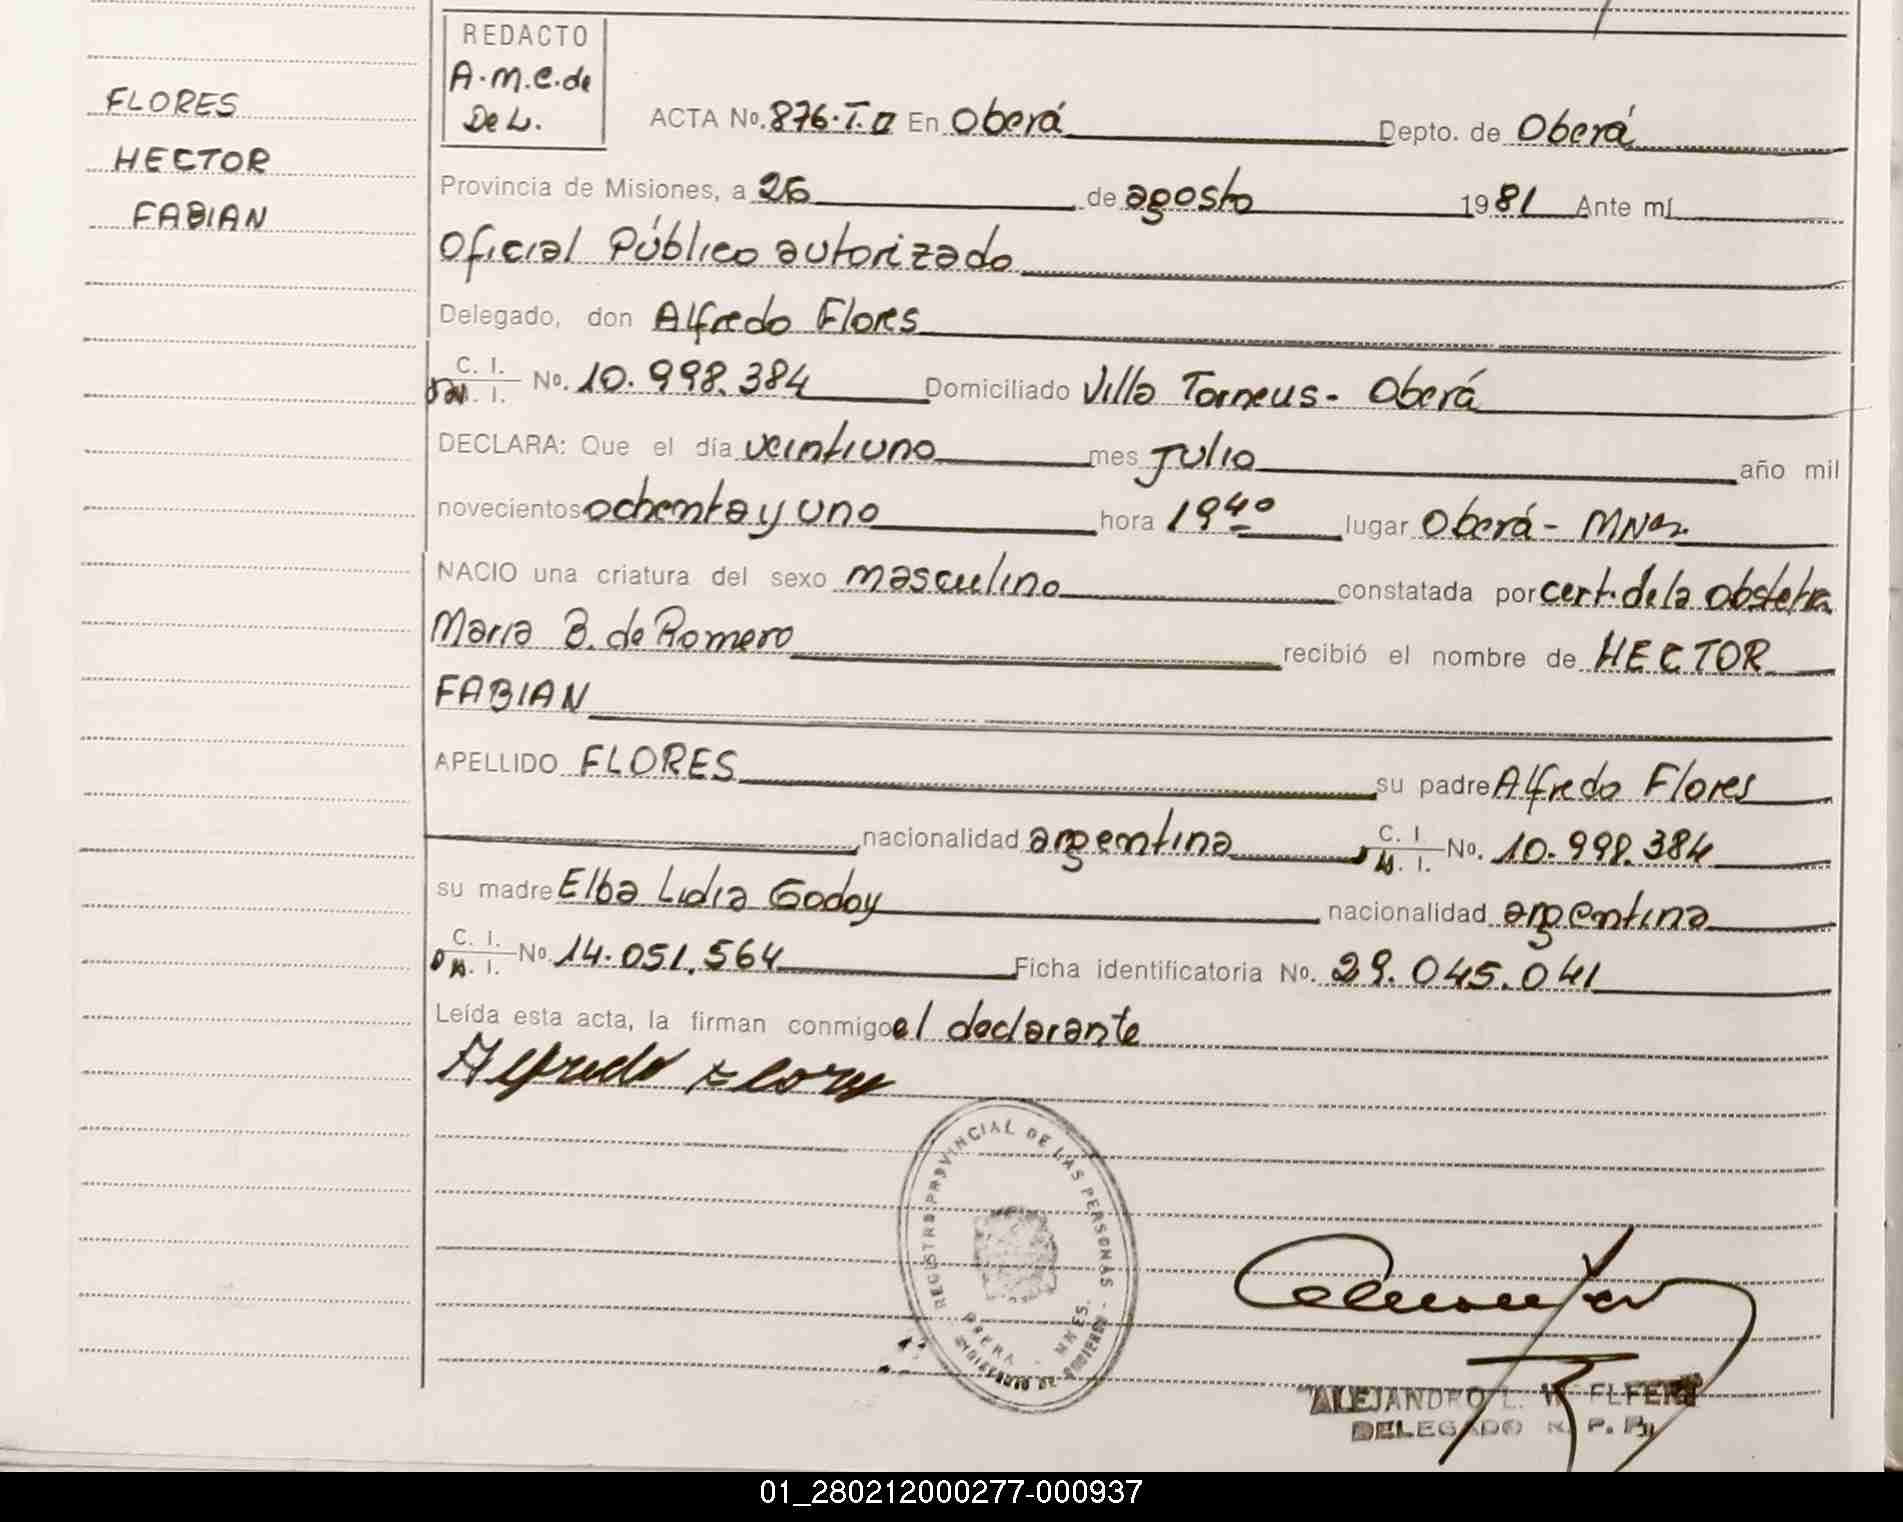 FLORES
HECTOR
FABIAN
REDACTO
A.M.C.de
De L.
ACTA No. 876.T.II En Oberá Depto. de Oberá
Provincia de Misiones, a 26 de agosto 1981 Ante mí
Oficial Público autorizado
Delegado, don Alfredo Flores
C. I. M. I. No. 10.998.384 Domiciliado Villa Torneus - Oberá
DECLARA: Que el día veintiuno mes Julio año mil
novecientos ochenta y uno hora 19 40 lugar Oberá - MNes.
NACIO una criatura del sexo masculino constatada por cert. de la obstetra
Maria B. de Romero recibió el nombre de HECTOR
FABIAN
APELLIDO FLORES su padre Alfredo Flores
nacionalidad argentina C. I. M. I. No. 10.998.384
su madre Elba Lidia Godoy nacionalidad argentina
C. I. M. I. No. 14.051.564 Ficha identificatoria No. 29.045.041
Leída esta acta, la firman conmigo el declarante
Alfredo Flores
REGISTRO PROVINCIAL DE LAS PERSONAS
OBERA - MNES.
MINISTERIO DE GOBIERNO
ALEJANDRO L.
DELEGADO R. P. P.
01_280212000277-000937